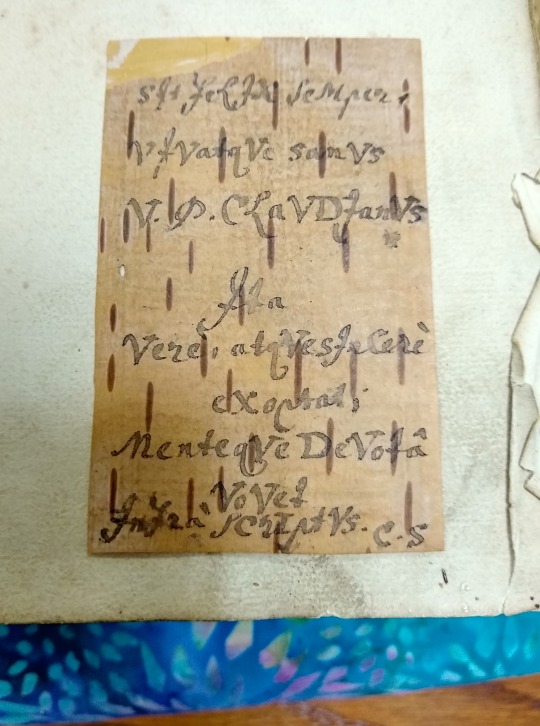 sIt feLIX seMper,
VIVatqVe sanVs
V. P. CLaVDIanVs
Ita
Vere, atqVe sInCerè
eXoptat,
MenteqVe DeVotâ
VoVet
Infrà sCrIptVs. C. S